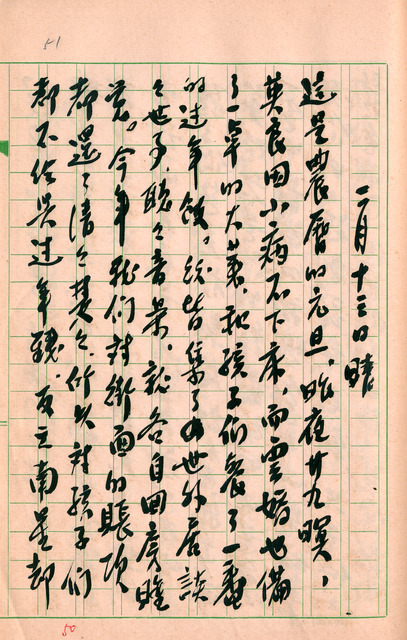 51
二月十三日 晴
這是農曆的元旦，昨夜廿九暝，
英良因小病不下床，而雲嬌也備
了一桌的大菜，和孩子們餐了一番
的过年飯。飯皆集了世外居談
之世事，聽之音樂，就各自回房睡
覺。今年我們对街面的賬項
都還了清々楚々，所以对孩子们
都不給與过年錢，反之南星却
50